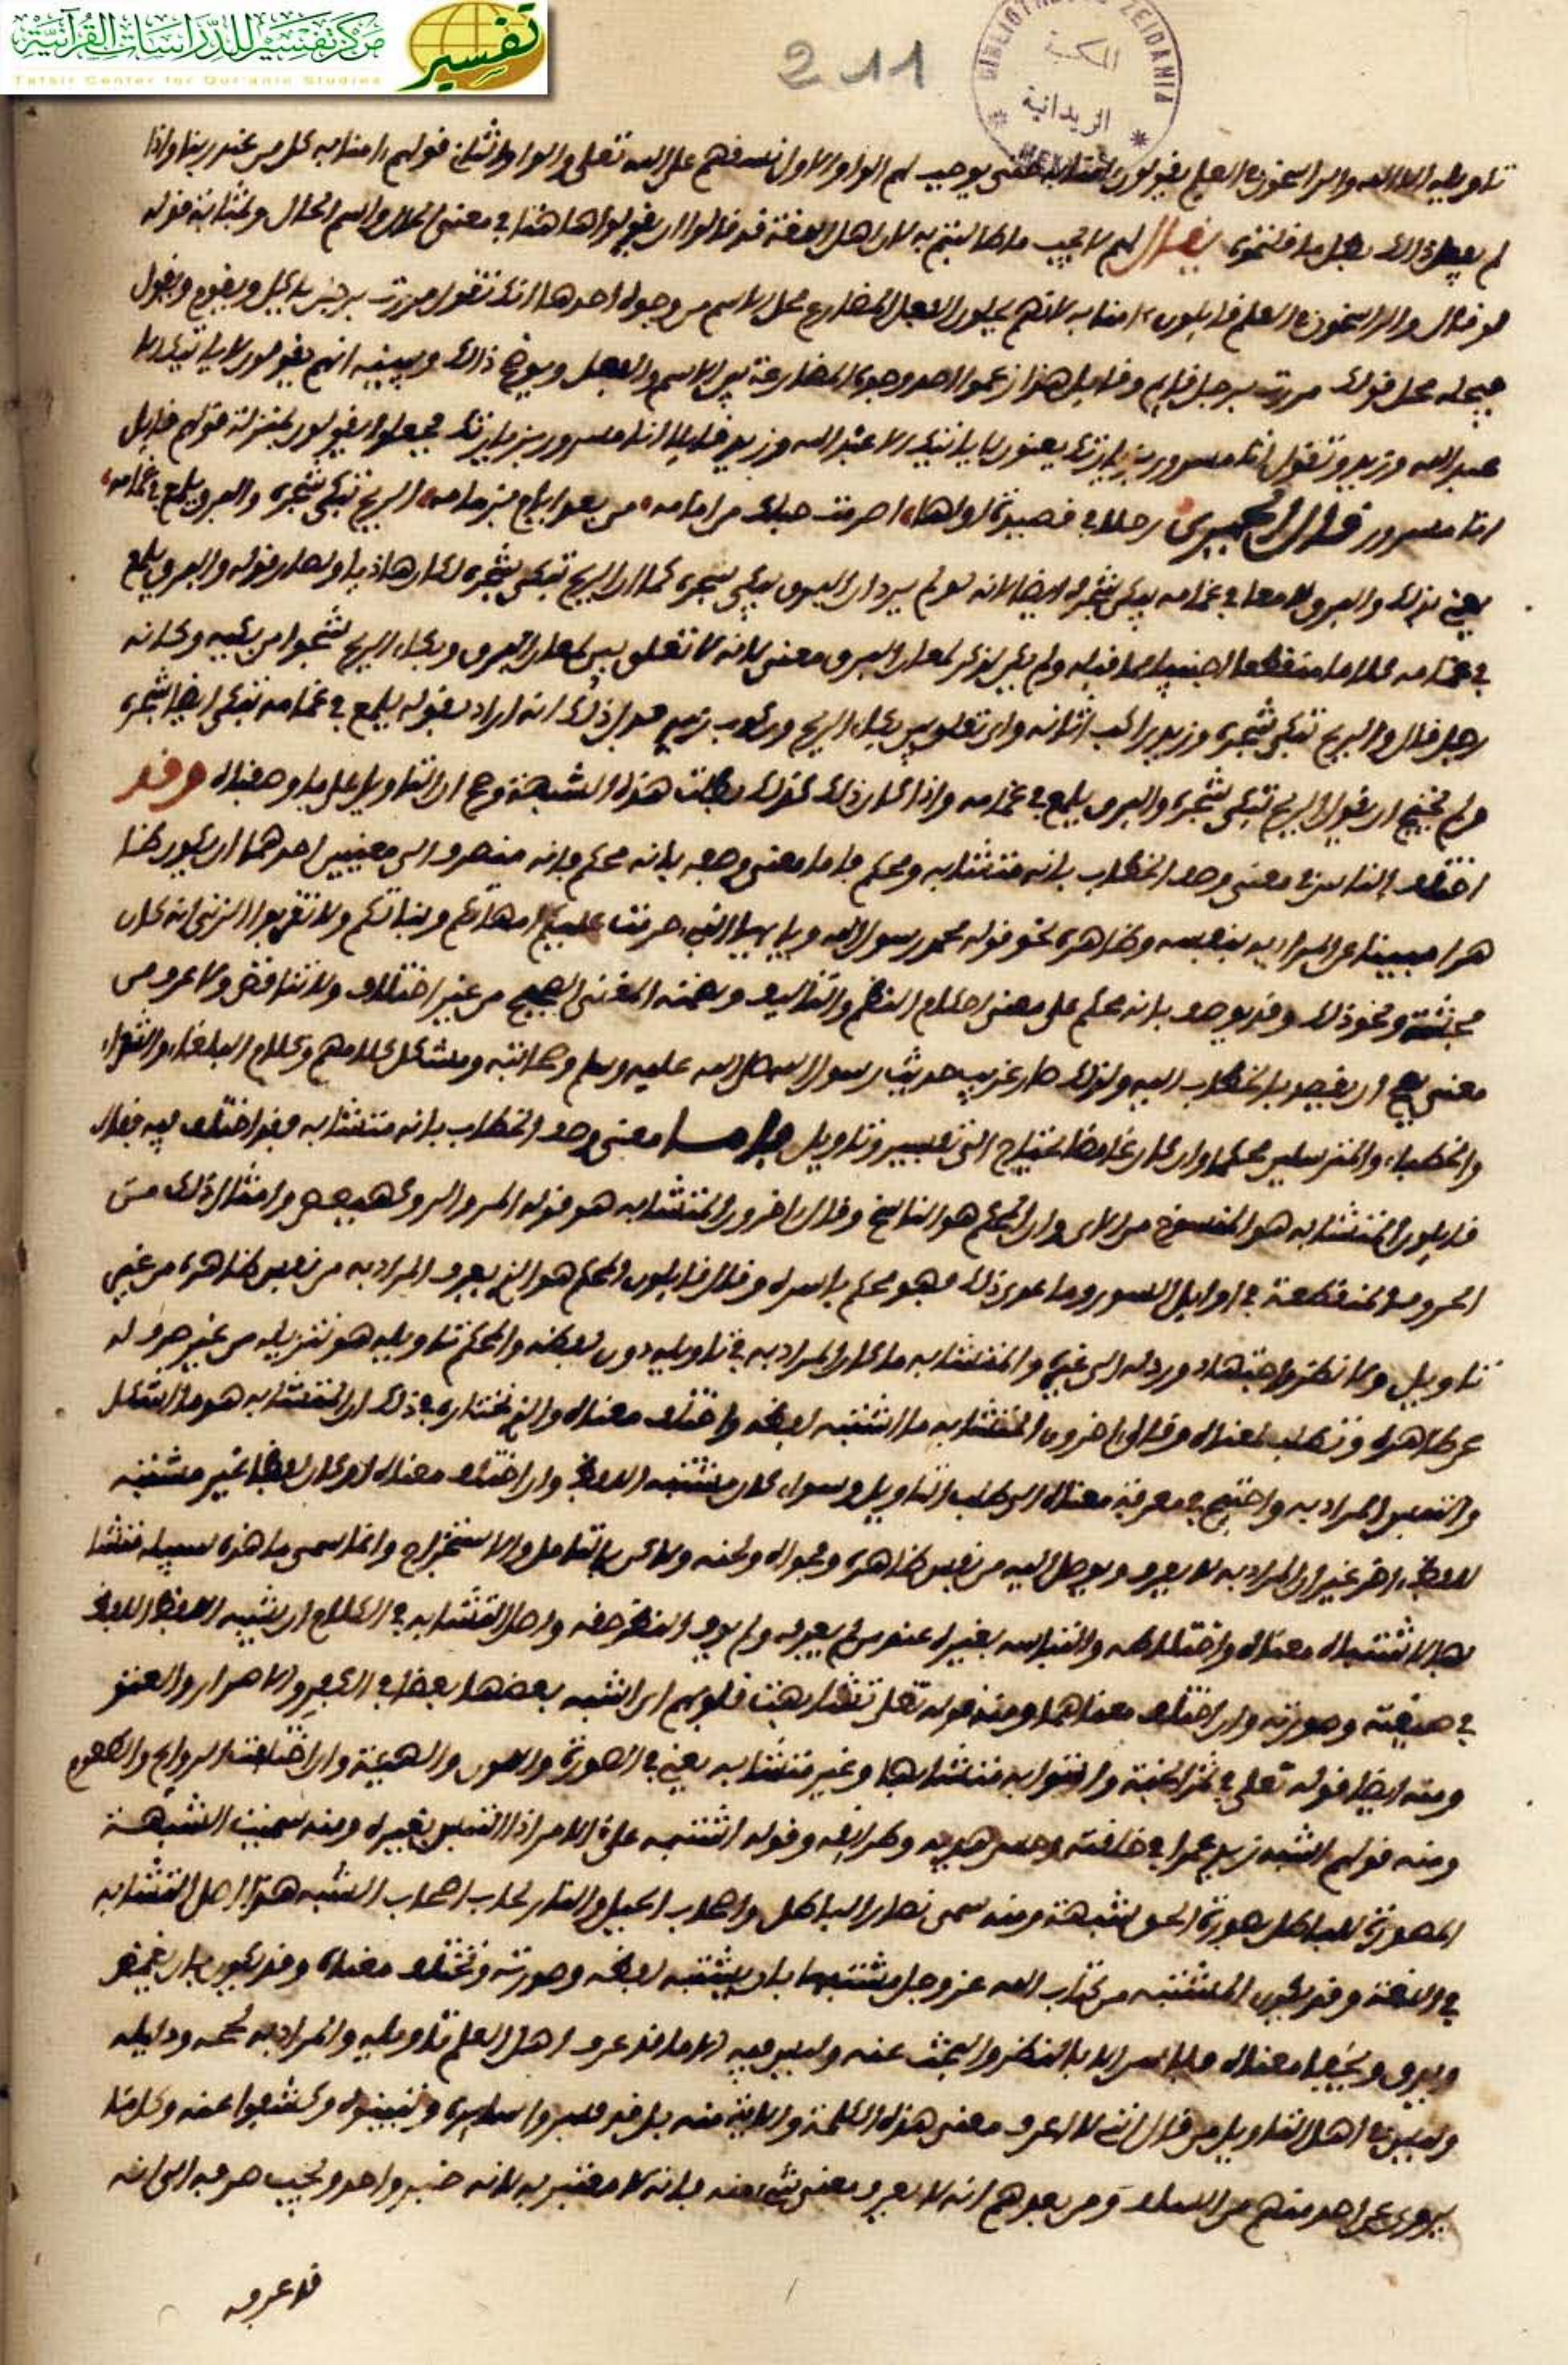 مركز تفسير للدراسات القرآنية
Tafsir Center for Qur'anic Studies
تفسير
211
BIBLIOTHEQUE ZEIDANIA
المكتبة
الزيدانية
تاويله الا الله والراسخون في العلم يقولون امنا به يوجب لهم الواو الاول نسقهم على الله تعلى والواو الثاني قولهم امنا به كل من عند ربنا واذا
لم يعجل ذالك بطل ما قلتموه يقال لهم لا يجب ما ظننتم به لان اهل اللغة قد قالوا ان يقولوا هاهنا في معنى الحال واسم الحال وبمثابة قوله
لو قال والراسخون في العلم قايلون امنا به لانهم يحلون الفعل المضارع محل الاسم من وجوه احدها انك تقول مررت برجل ياكل ويقوم ويقول
فيحله محل قولك مررت برجل قايم وقايل هذا زعموا احد وجوه المضارعة بين الاسم والفعل ويوضح ذالك ويبينه انهم يقولون لا ياتيك الا
عبد الله وزيد وتقول انا مسرور بزيارتك يعنون لا ياتيك الا عبد الله وزيد قايلا انا مسرور بزيارتك فجعلوا يقولون بمنزلة قولهم قايل
انا مسرور قال الحميري رحلا في قصيدة اولها اصرمت حبلك من امامه من بعد ايام برامه الريح تبكي شجوه والبرق يلمع في غمامه
يعني بذلك والبرق لامعا في غمامه يبكي شجوه ايضا لانه لو لم يرد ان البرق يبكي شجوه كما ان الريح تبكي شجوه لكان هاذيا ولصار قوله والبرق يلمع
في غمامه كلاما منقطعا اجنبيا مما قبله ولم يكن لذكر لمعان البرق معنى لانه لا تعلق بين لمعان البرق وبكاء الريح شجوا من يبكيه وكانه
رجل قال والريح تبكي شجوه وزيد راكب اتانه واي تعلق بين بكاء الريح وركوب زيد فدل ذلك انه اراد بقوله يلمع في غمامه تبكي ايضا شجوه
ولم يحتج ان يقول الريح تبكي شجوه والبرق يلمع في غمامه واذا كان ذلك كذلك بطلت هذه الشبهة وصح ان التاويل على ما وصفناه وقد
اختلف الناس في معنى وصف الخطاب بانه متشابه ومحكم فاما معنى وصفه بانه محكم فانه منصرف الى معنيين احدهما ان يكون ظا
هرا مبينا عن المراد به بنفسه وظاهره نحو قوله محمد رسول الله ويا يها النبي حرمت عليكم امهاتكم وبناتكم ولا تقربوا الزنى انه كان
فحشة ونحو ذلك وقد يوصف بانه محكم على معنى احكام النظم والتاليف وضمنه المعنى الصحيح من غير اختلاف ولا تناقض ولا عرو من
معنى يصح ان يقصد بالخطاب اليه ولذلك صار غريب حديث رسول الله صلى الله عليه وسلم وصحابته ومشكل كلامهم وكلام البلغاء والشعراء
والخطباء والمترسلين محكما وان كان غامضا يحتاج الى تفسير وتاويل فاما معنى وصف الخطاب بانه متشابه فقد اختلف فيه فقال
قايلون المتشابه هو المنسوخ من الاي وان المحكم هو الناسخ وقال اخرون المتشابه هو قوله المر والر وكهيعص وامثال ذلك من
الحروف المنقطعة في اوايل السور وما عدى ذلك فهو محكم باسره وقال قايلون المحكم هو الذي يعرف المراد به من نفس ظاهره من غير
تاويل ولا نظر واجتهاد ورده الى غيره والمتشابه ما كان المراد به في تاويله دون لفظه والمحكم تاويله هو تنزيله من غير صرف له
عن ظاهره وتطلب لمعناه وقال اخرون المتشابه ما اشتبه لفظه واختلف معناه والذي نختاره في ذلك ان المتشابه هو ما اشكل
والتبس المراد به واحتيج في معرفة معناه الى طلب التاويل وسواء كان مشتبه اللفظ وان اختلف معناه او كان لفظا غير مشتبه
للفظ اخر غير ان المراد به لا يعرف ويوصل اليه من نفس ظاهره وفحواه ولحنه ولاكن بالتامل والاستخراج وانما سمى ما هذه سبيله متشا
بها لاشتباه معناه واختلاطه والتباسه بغيره عند من لم يعرفه ولم يوف النظر حقه واصل التشابه في الكلام ان يشبه اللفظ اللفظ
في صيغته وصورته وان اختلف معناهما ومنه قوله تعلى تشابهت قلوبهم اي اشبه بعضها بعضا في الكفر والاصرار والعتو
ومنه ايضا قوله تعلى في ثمر الجنة واتوا به متشابها وغير متشابه يعني في الصورة واللون والهيئة وان اختلفت الروايح والطعوم
ومنه قولهم اشبه زيد عمرا في خلقته وحسن هديه وطرايقه وقوله اشتبه علي الامر اذا التبس بغيره ومنه سميت الشبهة
المصورة للباطل بصورة الحق شبهة ومنه سمى نصار الباطل واصحاب الحيل والتار لحاب اصحاب الشبه هذا اصل التشابه
في اللغة وقد يكون المشتبه من كتاب الله عز وجل مشتبها بان يشتبه لفظه وصورته وتختلف معناه وقد يكون بان يغمض
ويدق ويخفى معناه فلا يدرى الا بالنظر والبحث عنه وليس فيه الا ما قد عرف اهل العلم تاويله والمراد به لحجه ودليله
وليس في اهل التاويل من قال اني لا اعرف معنى هذه الكلمة والاية منه بل قد فسروا ساير ه وتبينوه وكشفوا عنه وكل ما
يروى عن احد منهم من السلف ومن بعدهم انه لا يعرف معنى شيء منه فانه لا معتبر به لانه خبر واحد ويجب صرفه الى انه
قد عرف